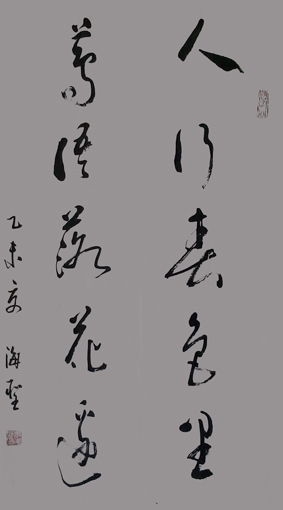 人行春色里
莺语落花边
乙未夏 海聖